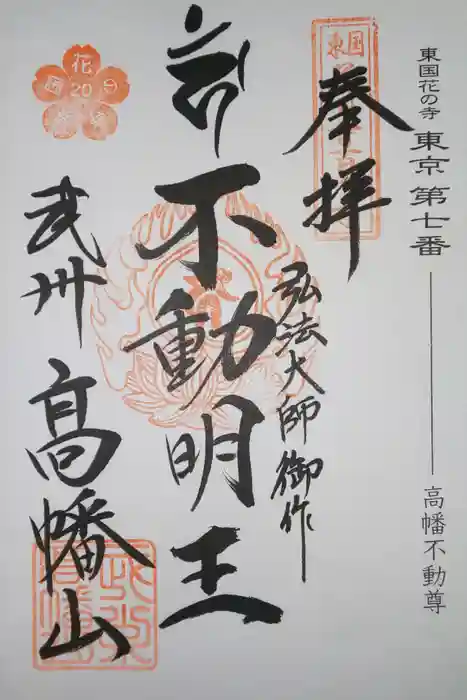 東国花の寺 東京 第七番
高幡不動尊
奉拝
東国
弘法大師御作
不動明王
武州 高幡山
花
20